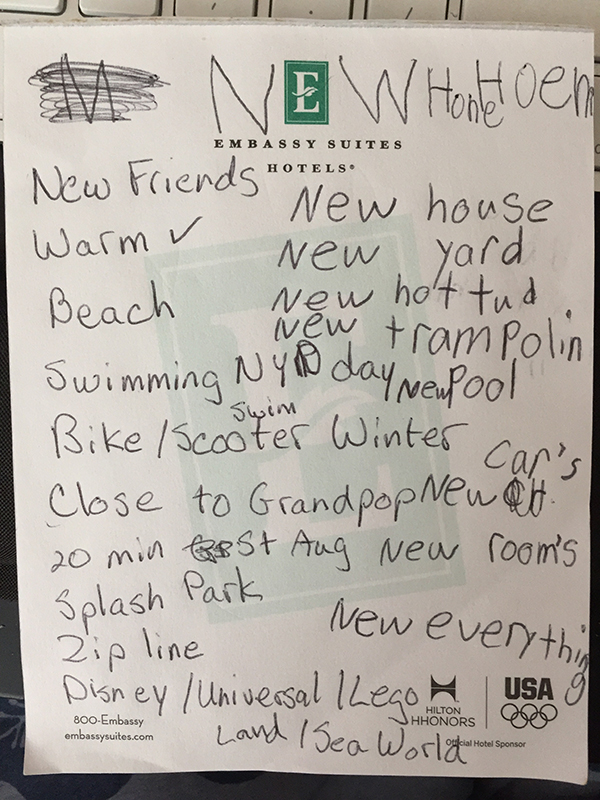 M NEW Home Hoem
EMBASSY SUITES
HOTELS®
New Friends
New house
Warm ✓
New yard
Beach
New hot tud
New trampolin
Swimming NYD day New Pool
swim
Bike/Scooter Winter
Car's
Close to Grandpop New
20 min St Aug New room's
Splash Park
New everything
Zip line
Disney/Universal/Lego
Land/Sea World
800-Embassy
embassysuites.com
HILTON
HHONORS
USA
Official Hotel Sponsor